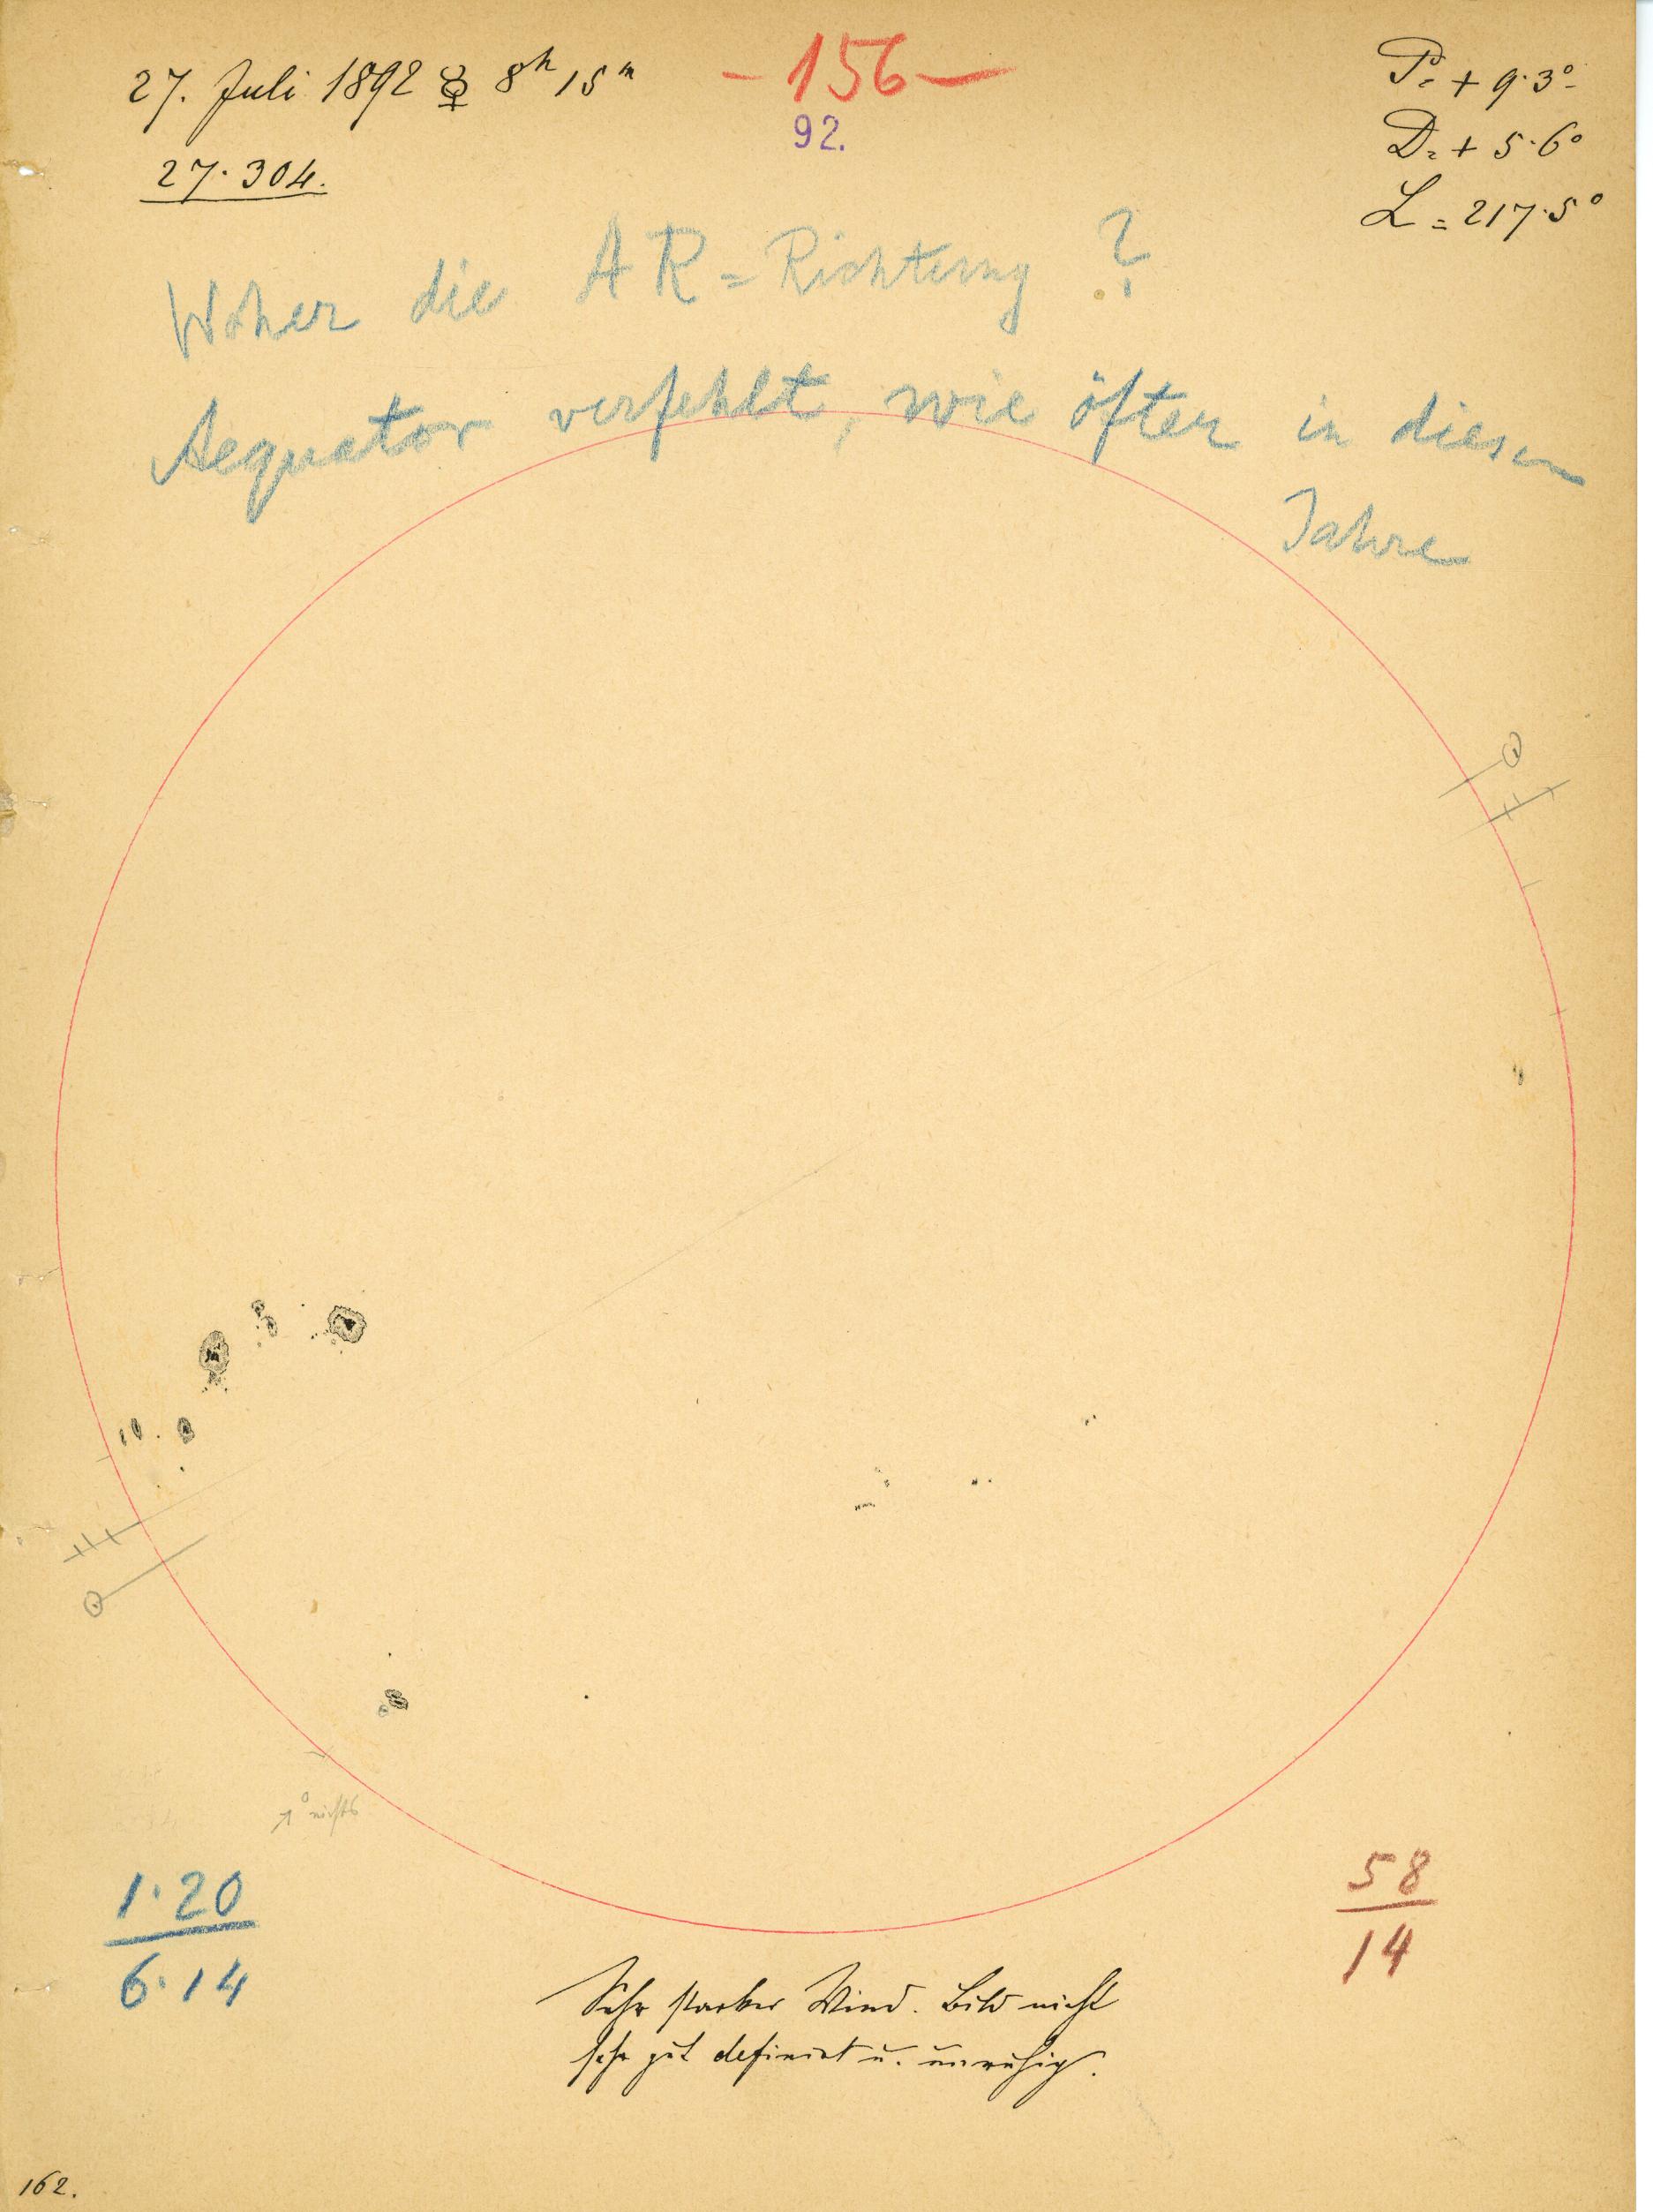 27. Juli 1892 ☿ 8h 15m
- 156 -
P. = + 9·3°
92.
D. = + 5·6°
27·304.
L = 217·5°
Woher die AR = Richtung ?
Aequator verfehlt, wie öfter in diesem
Jahre
nichts
1·20
6·14
58
14
Sehr starker Wind. Bild nicht
sehr gut definirt u. unruhig.
162.